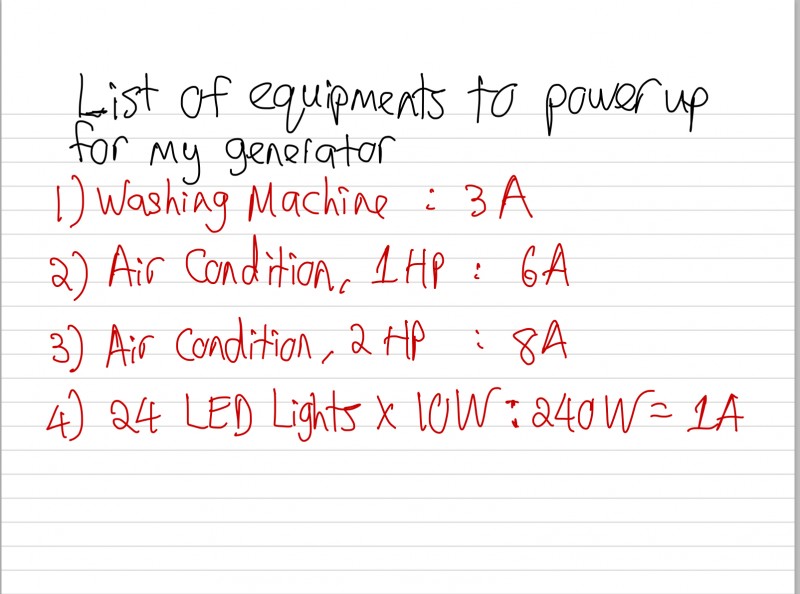 List of equipments to power up
for my generator
1) Washing Machine : 3 A
2) Air Condition, 1 HP : 6A
3) Air Condition, 2 HP : 8A
4) 24 LED Lights x 10W : 240W = 1A